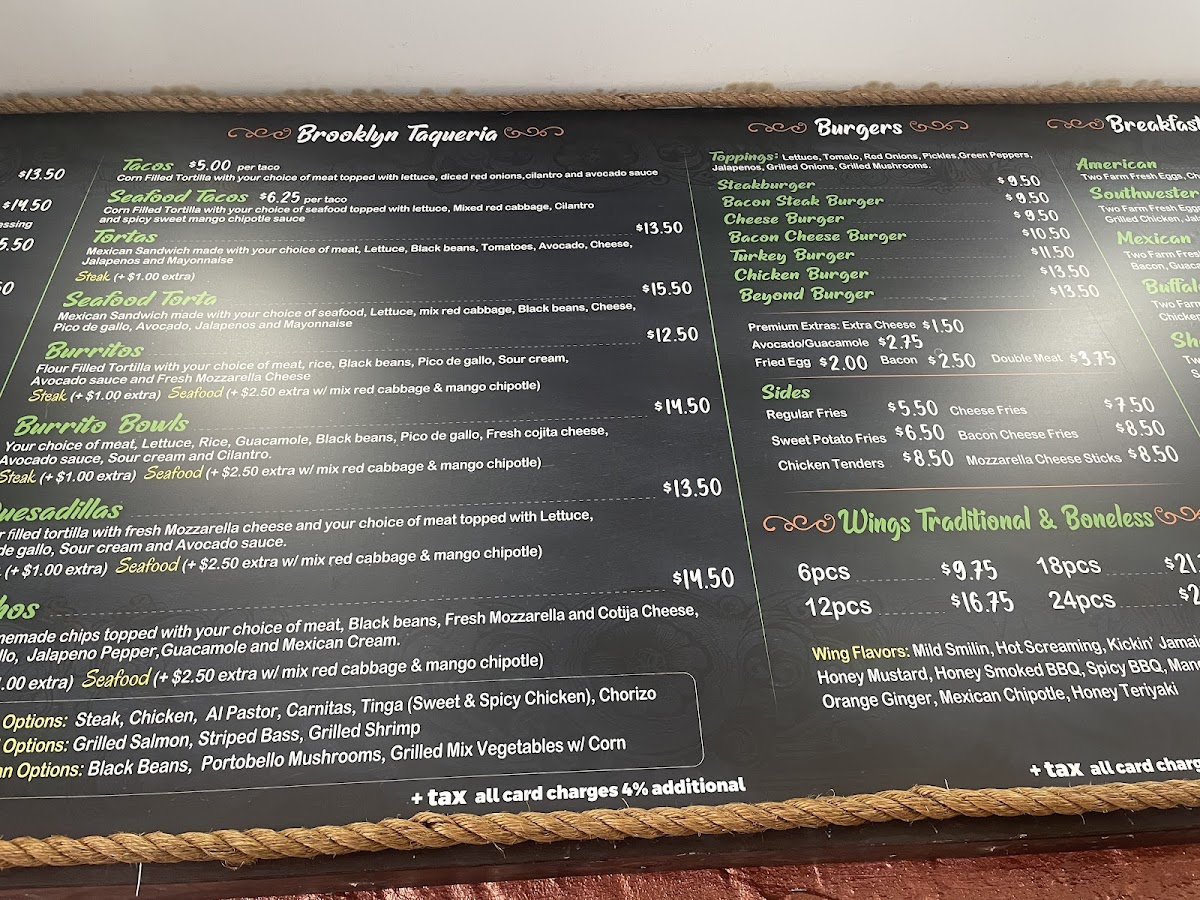 $13.50
$14.50
essing
5.50
50
Brooklyn Taqueria
Tacos $5.00 per taco
Corn Filled Tortilla with your choice of meat topped with lettuce, diced red onions,cilantro and avocado sauce
Seafood Tacos $6.25 per taco
Corn Filled Tortilla with your choice of seafood topped with lettuce, Mixed red cabbage, Cilantro
and spicy sweet mango chipotle sauce
Tortas $13.50
Mexican Sandwich made with your choice of meat, Lettuce, Black beans, Tomatoes, Avocado, Cheese,
Jalapenos and Mayonnaise
Steak (+ $1.00 extra)
Seafood Torta $15.50
Mexican Sandwich made with your choice of seafood, Lettuce, mix red cabbage, Black beans, Cheese,
Pico de gallo, Avocado, Jalapenos and Mayonnaise
Burritos $12.50
Flour Filled Tortilla with your choice of meat, rice, Black beans, Pico de gallo, Sour cream,
Avocado sauce and Fresh Mozzarella Cheese
Steak (+ $1.00 extra) Seafood (+ $2.50 extra w/ mix red cabbage & mango chipotle)
Burrito Bowls $14.50
Your choice of meat, Lettuce, Rice, Guacamole, Black beans, Pico de gallo, Fresh cojita cheese,
Avocado sauce, Sour cream and Cilantro.
Steak (+ $1.00 extra) Seafood (+ $2.50 extra w/ mix red cabbage & mango chipotle)
uesadillas $13.50
r filled tortilla with fresh Mozzarella cheese and your choice of meat topped with Lettuce,
de gallo, Sour cream and Avocado sauce.
(+ $1.00 extra) Seafood (+ $2.50 extra w/ mix red cabbage & mango chipotle)
hos $14.50
nemade chips topped with your choice of meat, Black beans, Fresh Mozzarella and Cotija Cheese,
llo, Jalapeno Pepper,Guacamole and Mexican Cream.
.00 extra) Seafood (+ $2.50 extra w/ mix red cabbage & mango chipotle)
Options: Steak, Chicken, Al Pastor, Carnitas, Tinga (Sweet & Spicy Chicken), Chorizo
Options: Grilled Salmon, Striped Bass, Grilled Shrimp
an Options: Black Beans, Portobello Mushrooms, Grilled Mix Vegetables w/ Corn
+ tax all card charges 4% additional
Burgers
Toppings: Lettuce, Tomato, Red Onions, Pickles,Green Peppers,
Jalapenos, Grilled Onions, Grilled Mushrooms.
Steakburger $9.50
Bacon Steak Burger $9.50
Cheese Burger $9.50
Bacon Cheese Burger $10.50
Turkey Burger $11.50
Chicken Burger $13.50
Beyond Burger $13.50
Premium Extras: Extra Cheese $1.50
Avocado/Guacamole $2.75
Fried Egg $2.00 Bacon $2.50 Double Meat $3.75
Sides
Regular Fries $5.50 Cheese Fries $7.50
Sweet Potato Fries $6.50 Bacon Cheese Fries $8.50
Chicken Tenders $8.50 Mozzarella Cheese Sticks $8.50
Wings Traditional & Boneless
6pcs $9.75 18pcs $21.
12pcs $16.75 24pcs $2
Wing Flavors: Mild Smilin, Hot Screaming, Kickin' Jamai
Honey Mustard, Honey Smoked BBQ, Spicy BBQ, Man
Orange Ginger, Mexican Chipotle, Honey Teriyaki
+ tax all card charg
Breakfast
American
Two Farm Fresh Eggs, Ch
Southwester
Two Farm Fresh Eggs
Grilled Chicken, Jal
Mexican
Two Farm Fresh
Bacon, Guaca
Buffalo
Two Farm
Chicken
Sh
Tw
S